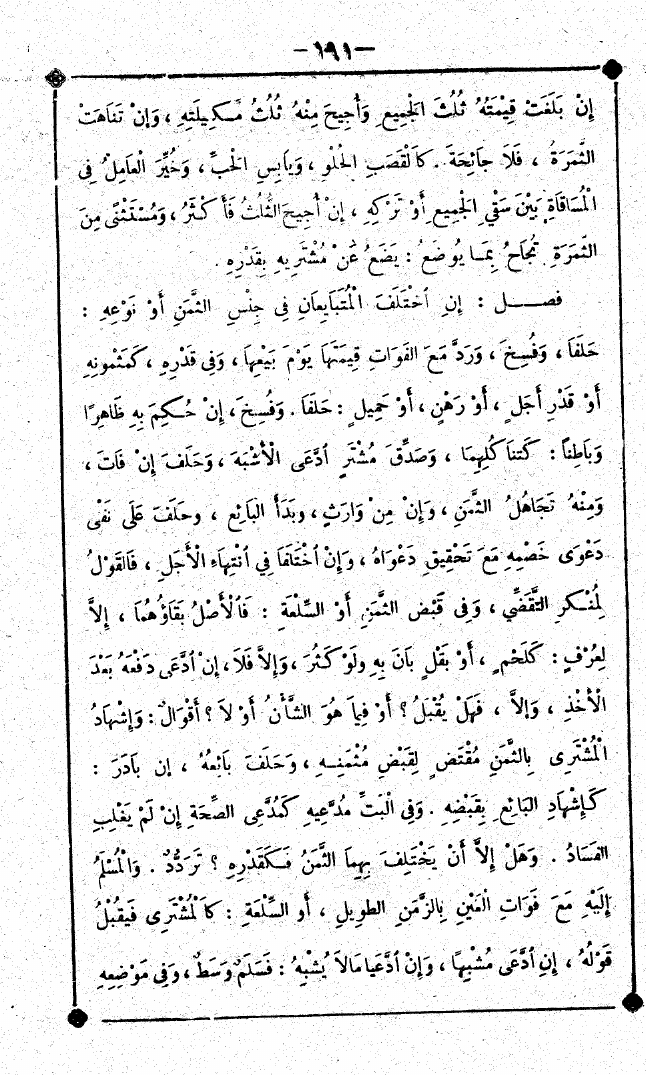 -١٩١-
إِنْ بَلَغَتْ قِيمَتُهُ ثُلُثَ الْجَمِيعِ وَأُجِيحَ مِنْهُ ثُلُثُ مَكِيلَتِهِ ، وَإِنْ تَنَاهَتْ
الثَّمَرَةُ ، فَلَا جَائِحَةَ . كَالْقَصَبِ الْحُلْوِ ، وَيَابِسِ الْحَبِّ ، وَخُيِّرَ الْعَامِلُ فِى
الْمُسَاقَاةِ بَيْنَ سَقْيِ الْجَمِيعِ أَوْ تَرْكِهِ ، إِنْ أُجِيحَ الثُّلُثُ فَأَكْثَرُ ، وَمُسْتَثْنًى مِنَ
الثَّمَرَةِ تُجَاحُ بِمَا يُوضَعُ : يَضَعُ عَنْ مُشْتَرِيهِ بِقَدْرِهِ .
فصــل : إِنِ اخْتَلَفَ الْمُتَبَايِعَانِ فِى جِنْسِ الثَّمَنِ أَوْ نَوْعِهِ :
حَلَفَا ، وَفُسِخَ ، وَرَدَّ مَعَ الفَوَاتِ قِيمَتَهَا يَوْمَ بَيْعِهَا ، وَفِى قَدْرِهِ ، كَمَثْمُونِهِ
أَوْ قَدْرِ أَجَلٍ ، أَوْ رَهْنٍ ، أَوْ حَمِيلٍ : حَلَفَا . وَفُسِخَ ، إِنْ حُكِمَ بِهِ ظَاهِرًا
وَبَاطِنًا : كَتَنَا كُلِهِمَا ، وَصُدِّقَ مُشْتَرٍ ادَّعَى الْأَشْبَهَ ، وَحَلَفَ إِنْ فَاتَ ،
وَمِنْهُ تَجَاهُلُ الثَّمَنِ ، وَإِنْ مِنْ وَارِثٍ ، وبَدَأَ البَائِع ، وحَلَفَ عَلَى نَفْى
دَعْوَى خَصْمِهِ مَعَ تَحْقِيقِ دَعْوَاهُ ، وَإِنْ اخْتَلَفَا فِي انْتِهَاءِ الْأَجَلِ ، فَالقَوْلُ
لِمُنْكِرِ التَّقَضِّي ، وَفِى قَبْضِ الثَّمَنِ أَوْ السِّلْعَةِ : فَالْأَصْلُ بَقَاؤُهُمَا ، إِلَّا
لِعُرْفٍ : كَلَحْمٍ ، أَوْ بَقْلٍ بَانَ بِهِ وَلَوْ كَثُرَ ، وَإِلَّا فَلَا ، إِنْ ادَّعَى دَفْعَهُ بَعْدَ
الْأَخْذِ ، وَإِلَّا ، فَهَلْ يُقْبَلُ ؟ أَوْ فِيمَا هُوَ الشَّأْنُ أَوْ لَا ؟ أَقْوَالٌ : وَإِشْهَادُ
الْمُشْتَرِى بِالثَّمَنِ مُقْتَضٍ لِقَبْضِ مُثْمَنِهِ ، وَحَلَفَ بَائِعُهُ ، إِن بَادَرَ :
كَإِشْهَادِ البَائِعِ بِقَبْضِهِ . وَفِى الْبَتِّ مُدَّعِيهِ كَمُدَّعِى الصِّحَّةِ إِنْ لَمْ يَغْلِبِ
الفَسَادُ . وَهَلْ إِلَّا أَنْ يَخْتَلِفَ بِهِمَا الثَّمَنُ فَكَقَدْرِهِ ؟ تَرَدُّدٌ . وَالْمُسْلَمُ
إِلَيْهِ مَعَ فَوَاتِ الْعَيْنِ بِالزَّمَنِ الطَوِيلِ ، أَوِ السِّلْعَةِ : كَالْمُشْتَرِى فَيُقْبَلُ
قَوْلُهُ ، إِنِ ادَّعَى مُشْبِهًا ، وَإِنْ ادَّعَيَا مَالَا يُشْبِهُ : فَسَلَمٌ وَسَطٌ ، وَفِى مَوْضِعِهِ